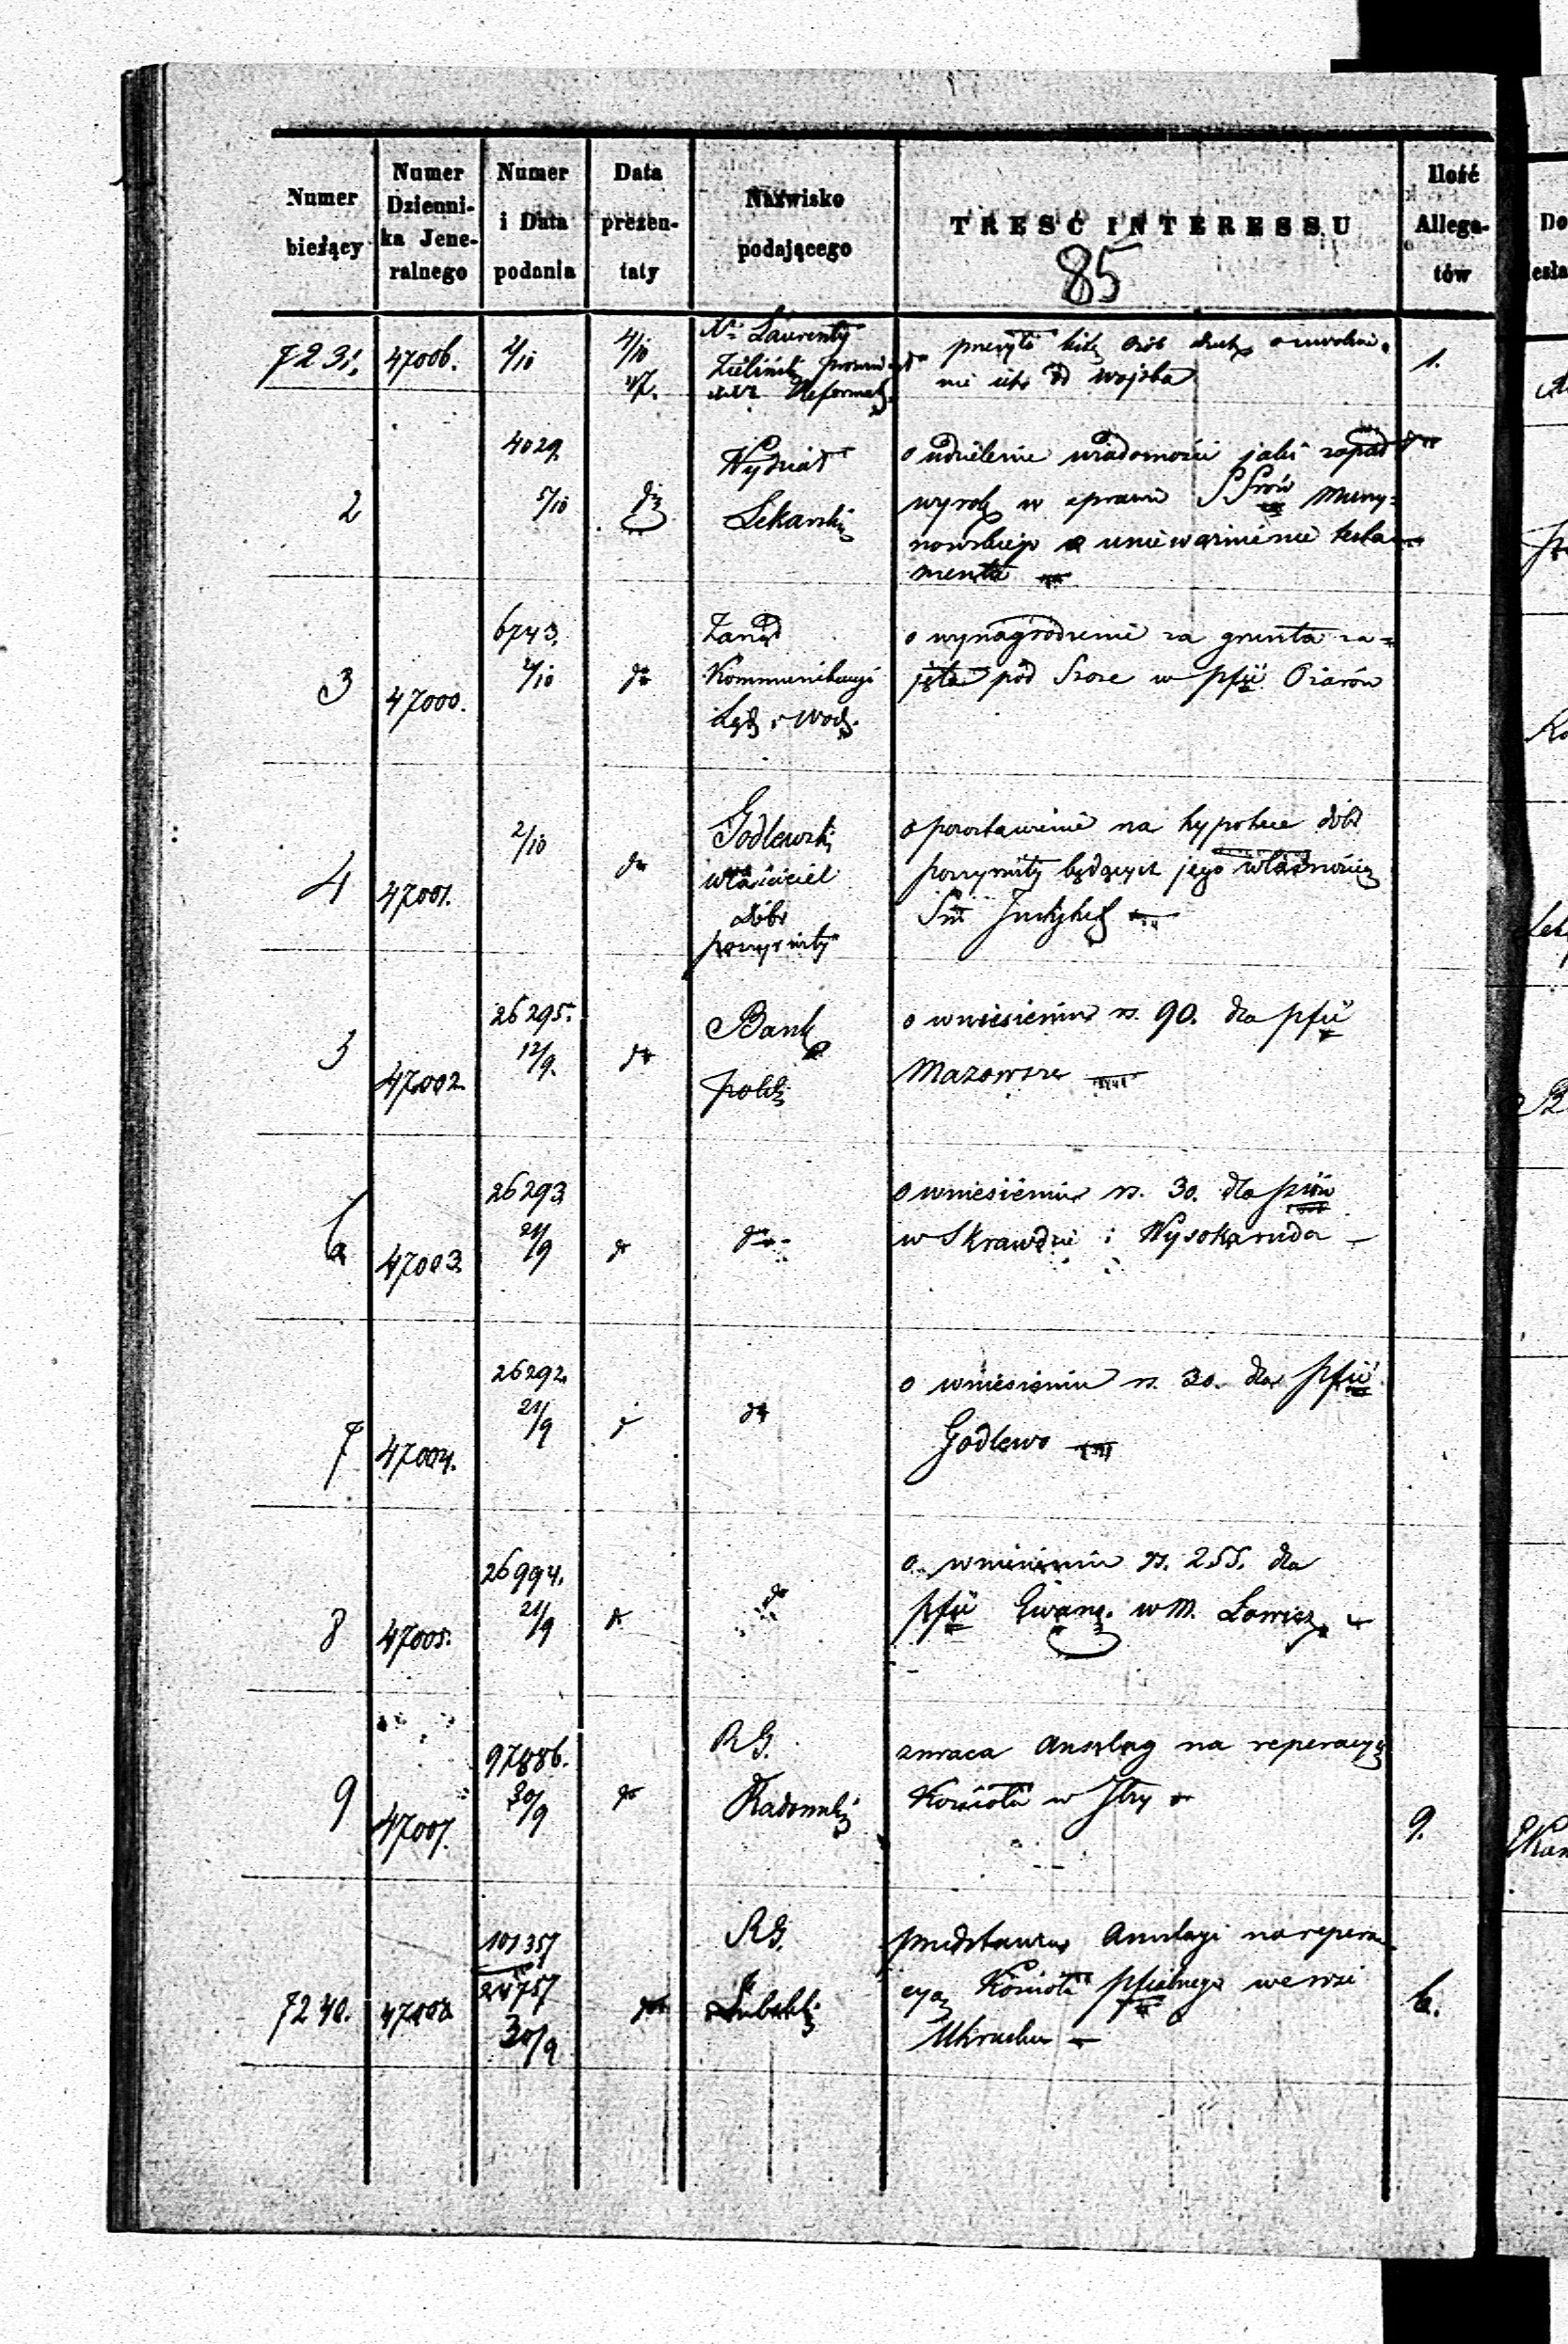 Numer bieżący
Numer Dzienni-ka Jene-ralnego
Numer i Data podania
Data prezen-taty
Nazwisko podającego
TREŚĆ INTERESSU
Ilość Allega-tów
85
7231. 47006. 2/10 4/10 X. Laurenty
Zieliński
Reformat
o uwolnie-
nie ich od wojska
1.
2 4029. 5/10 do Wydział
Lekarski
o udzielenie wiadomości jaki zapadł
wyrok w sprawie
nowskiego o unieważnienie testa-
mentu
3 47000. 6743. 2/10 do Zarząd
Kommunikacyi
Ląd. i Wod.
o wynagrodzenie za grunta za-
jęte pod Szosę w pfii Ożarów
4 47001. 2/10 do Godlewski
właściciel
dóbr
o pozostawienie na hypotece dóbr
będących jego własnością
5 47002. 26295. 12/9. do Bank
polski
o wniesieniu rs. 90. dla pfii
Mazowsze
6 47003. 26293 21/9 do do
o wniesieniu rs. 30. dla pfiów
w Skrawdzie i Wysokaruda
7 47004. 26292. 21/9 do
o wniesieniu rs. 30. dla pfii
Godlewo
8 47005. 26994. 21/9 do do
o wniesieniu rs. 255. dla
pfii Ewang. w M. Łowicz
9 47007. 97886. 30/9 do RG.
Radomski
zwraca Anszlag na reperacyą
Kościoła w Iłży
9.
7240. 47008 101357
24757
30/9 do RG.
Lubelski
przedstawia Anszlagi na repera-
cyą Kościoła pfialnego we wsi
6.